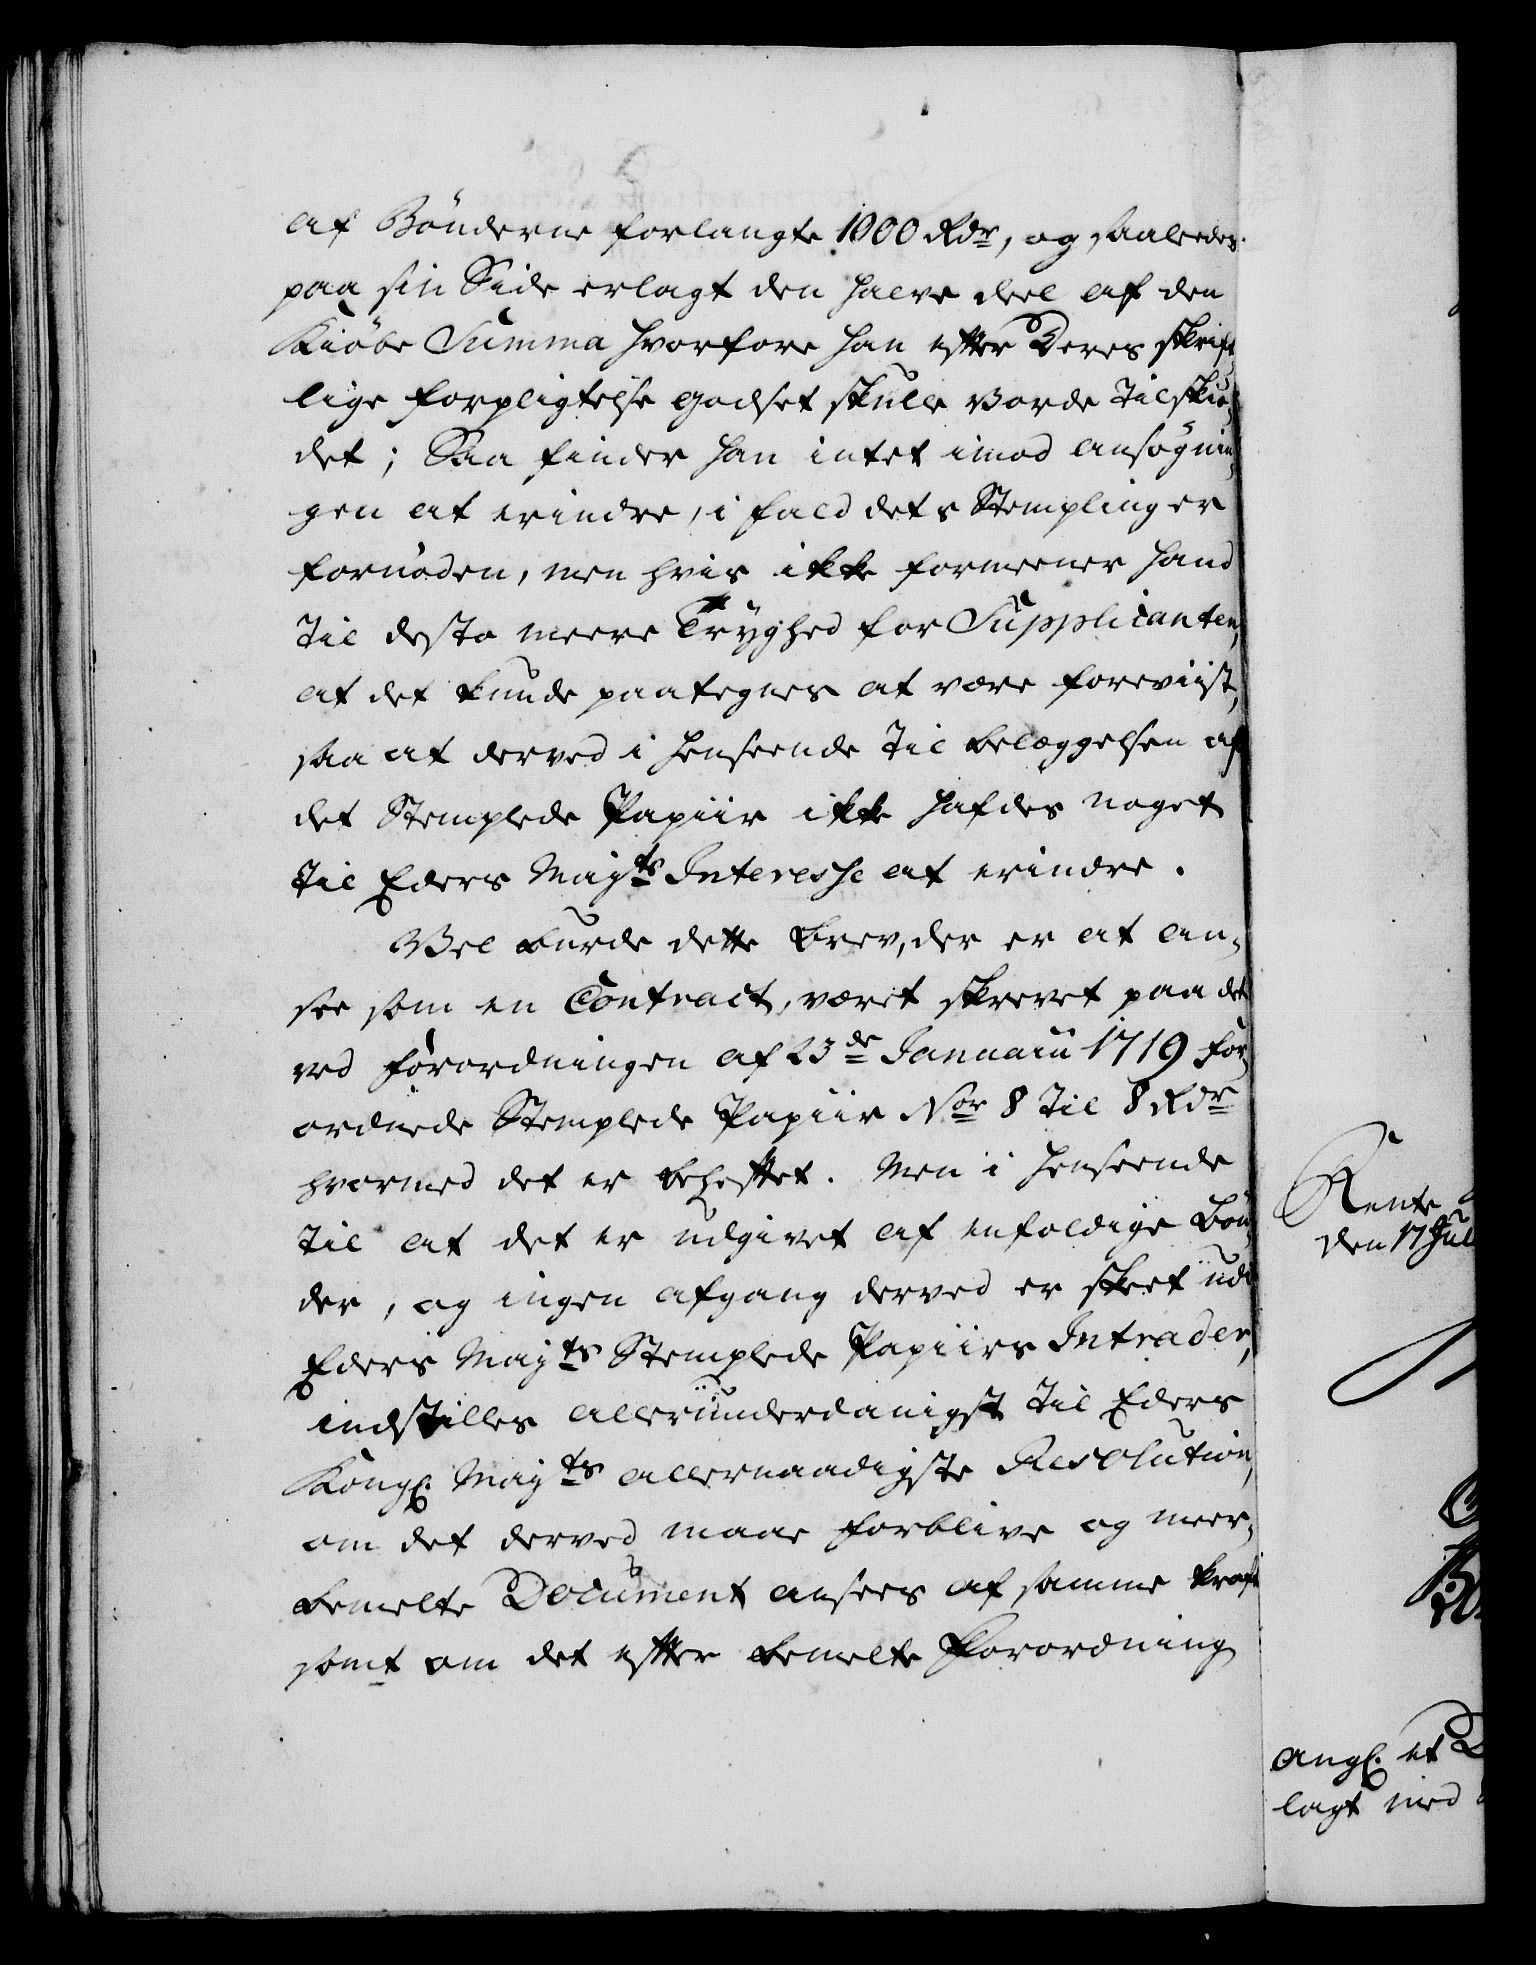 af Bönderne forlangte 1000 Rdr, og saaledes
paa sin Side erlagt den halve deel af den
Kiöbe Summa hvorfore han efter Deres skrift„
lige forpligtelse Godset skulle vorde tilskiö„
det; Saa finder han intet imod ansøgnin„
gen at erindre, i fald dets Stempling er
fornøden, men hvis ikke formeener hand
til desto meere Tryghed for Supplicanten,
at det kunde paategnes at være foreviist,
saa at derved i henseende til belæggelsen af
det Stemplede Papiir ikke hafdes noget
til Eders Mayts Interesse at erindre.
Vel burde dette brev, der er at an„
see som en Contract, været skrevet paa det
ved forordningen af 23de Januarii 1719 for„
ordnede Stemplede Papiir Nor 8 til 8 Rdr
hvormed det er behæftet. Men i henseende
til at det er udgivet af enfoldige bön„
der, og ingen afgang derved er skeet udi
Eders Mayts Stemplede Papiirs Intrader,
indstilles allerunderdanigst til Eders
Kongl. Mayts allernaadigste Resolution,
om det derved maae forblive og meer„
bemelte Document ansees af samme kraft
somt om det efter bemelte Forordning
Rente
den 17 Jul
angl. et D
lagt med